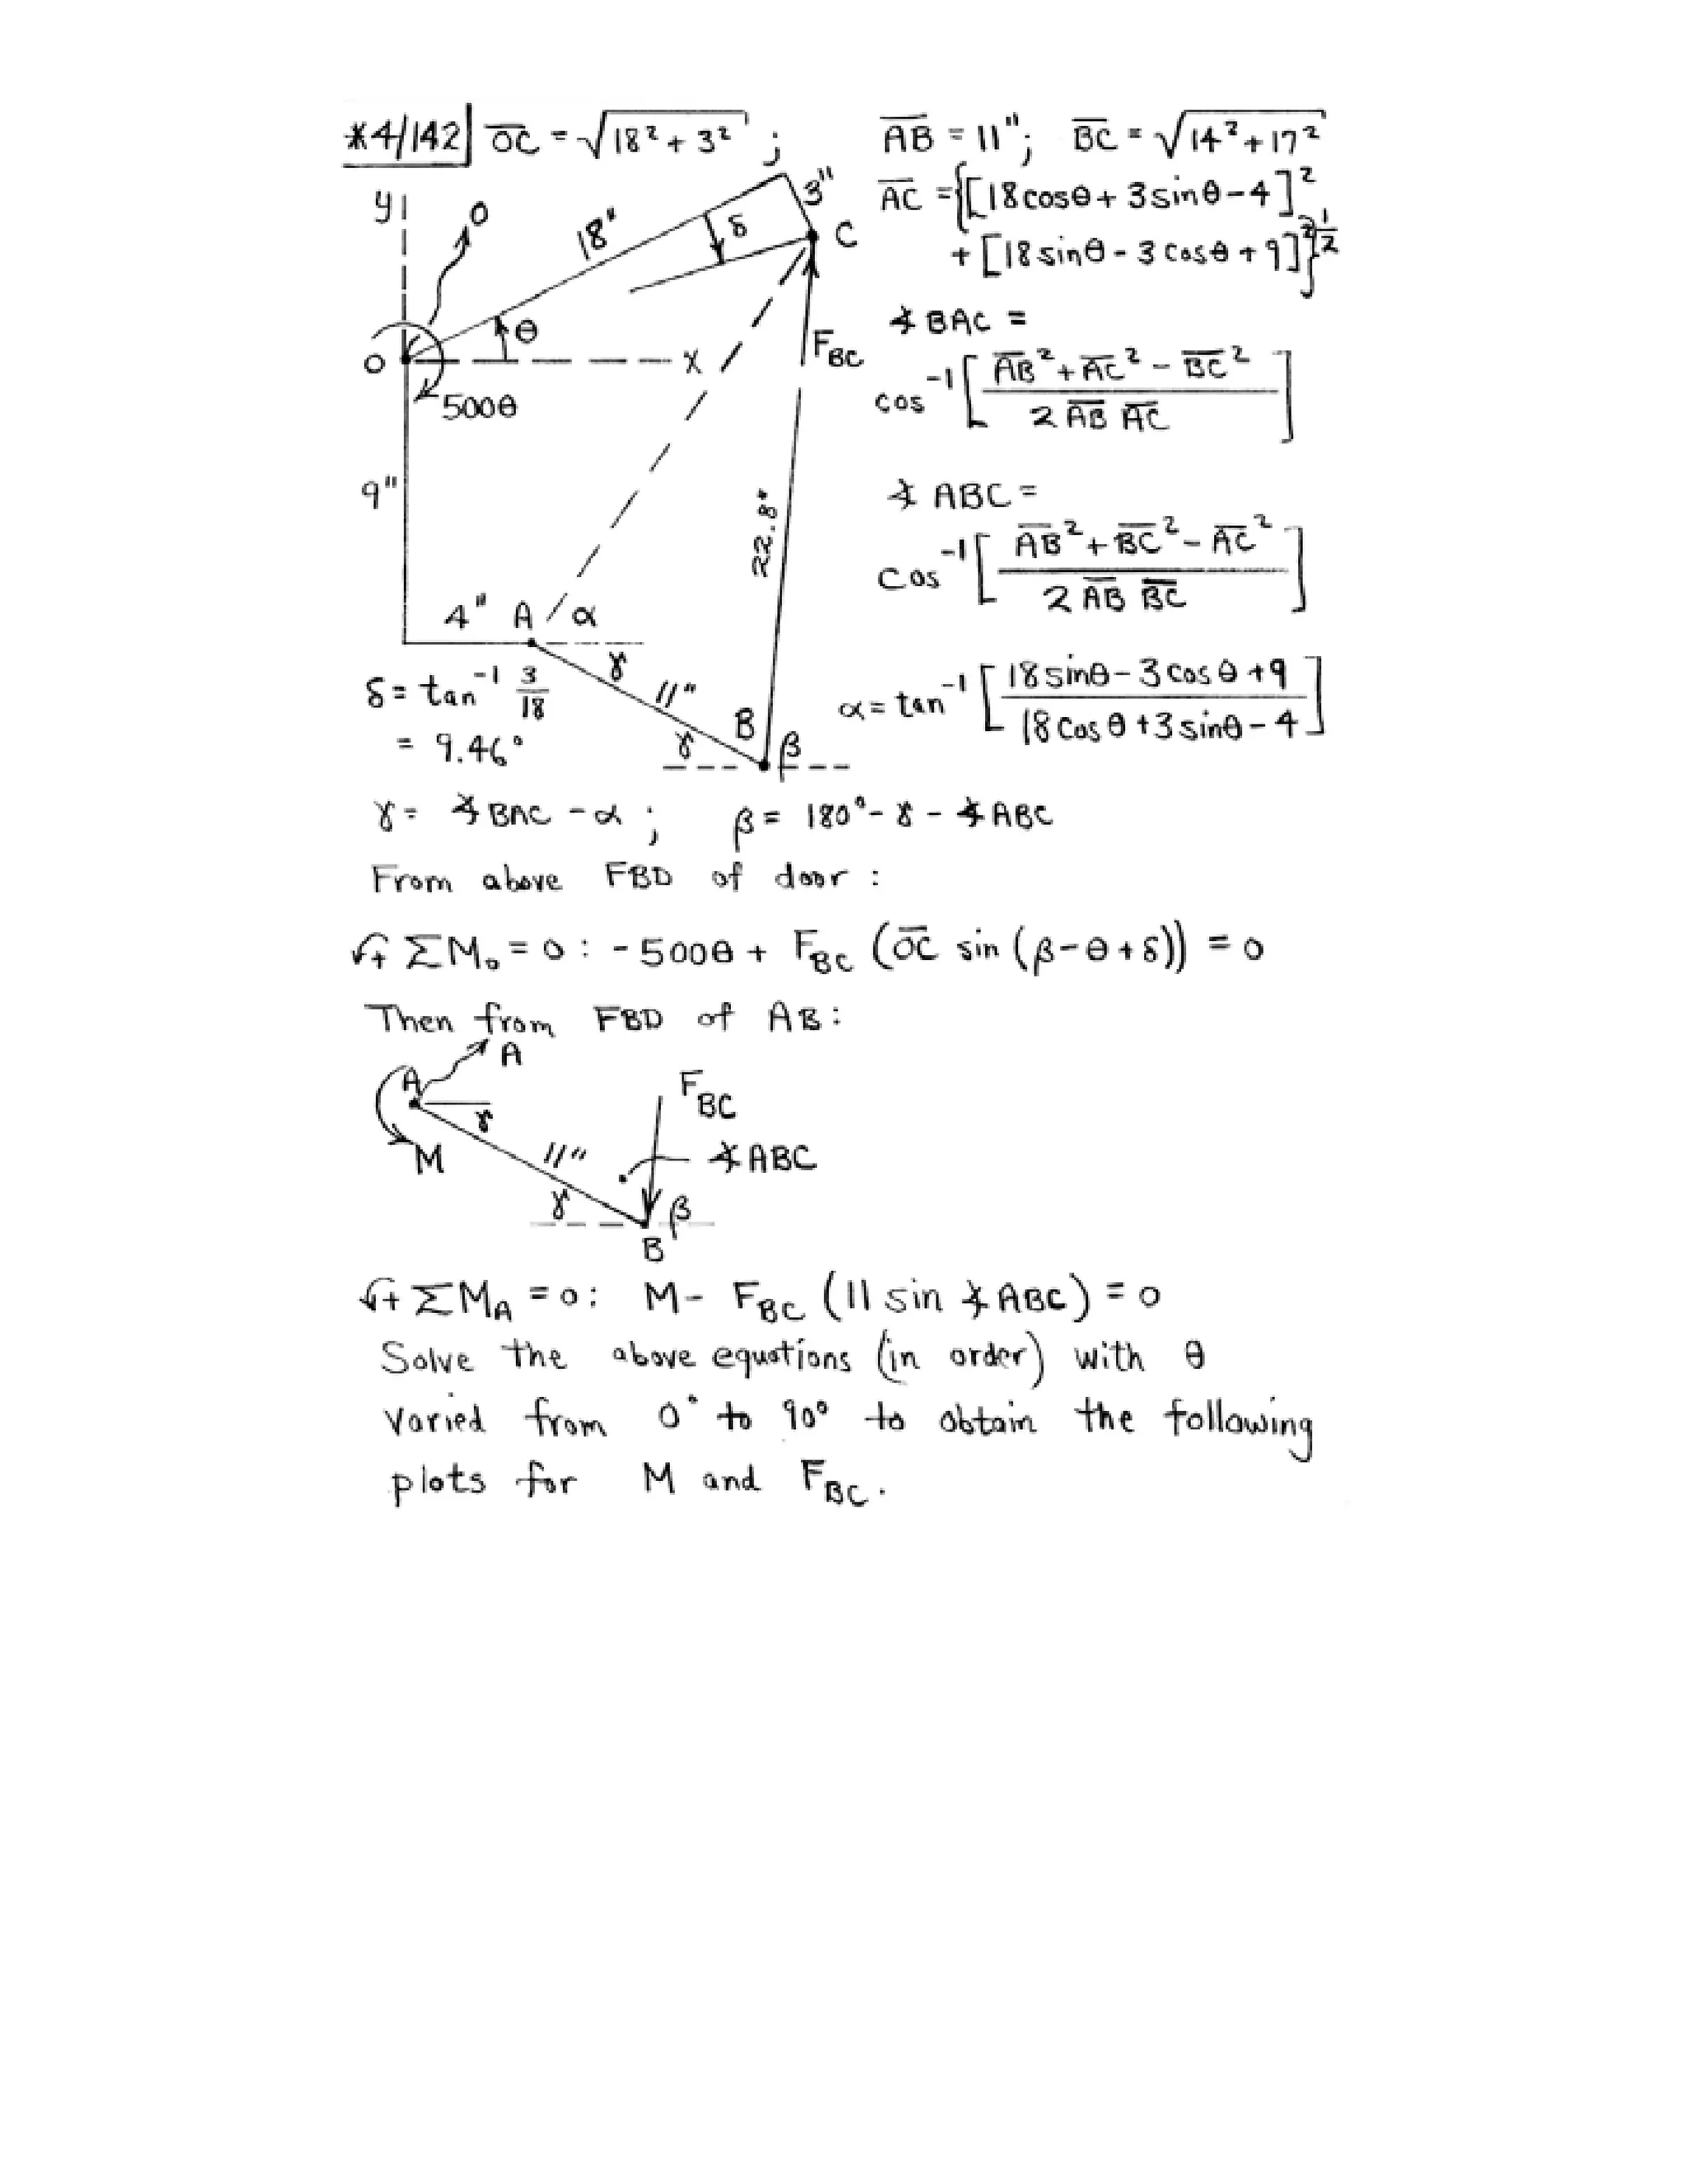 *4/142 O̅C̅ = √(18² + 3²) ; A̅B̅ = 11"; B̅C̅ = √(14² + 17²)
A̅C̅ = {[18cosθ + 3sinθ - 4]²
+ [18sinθ - 3cosθ + 9]²}^½
y
O
18"
3"
δ
C
θ
x
O
500θ
F_BC
∡ BAC =
cos⁻¹ [ (A̅B̅² + A̅C̅² - B̅C̅²) / (2 A̅B̅ A̅C̅) ]
9"
22.8"
∡ ABC =
cos⁻¹ [ (A̅B̅² + B̅C̅² - A̅C̅²) / (2 A̅B̅ B̅C̅) ]
4" A α
γ
11"
B
γ β
δ = tan⁻¹ 3/18
= 9.46°
α = tan⁻¹ [ (18sinθ - 3cosθ + 9) / (18cosθ + 3sinθ - 4) ]
γ = ∡ BAC - α ; β = 180° - γ - ∡ ABC
From above FBD of door :
↶+ ΣM₀ = 0 : - 500θ + F_BC (O̅C̅ sin (β - θ + δ)) = 0
Then from FBD of AB :
A
A
γ
M
F_BC
11"
∡ ABC
γ β
B
↶+ ΣM_A = 0 : M - F_BC (11 sin ∡ ABC) = 0
Solve the above equations (in order) with θ
varied from 0° to 90° to obtain the following
plots for M and F_BC.